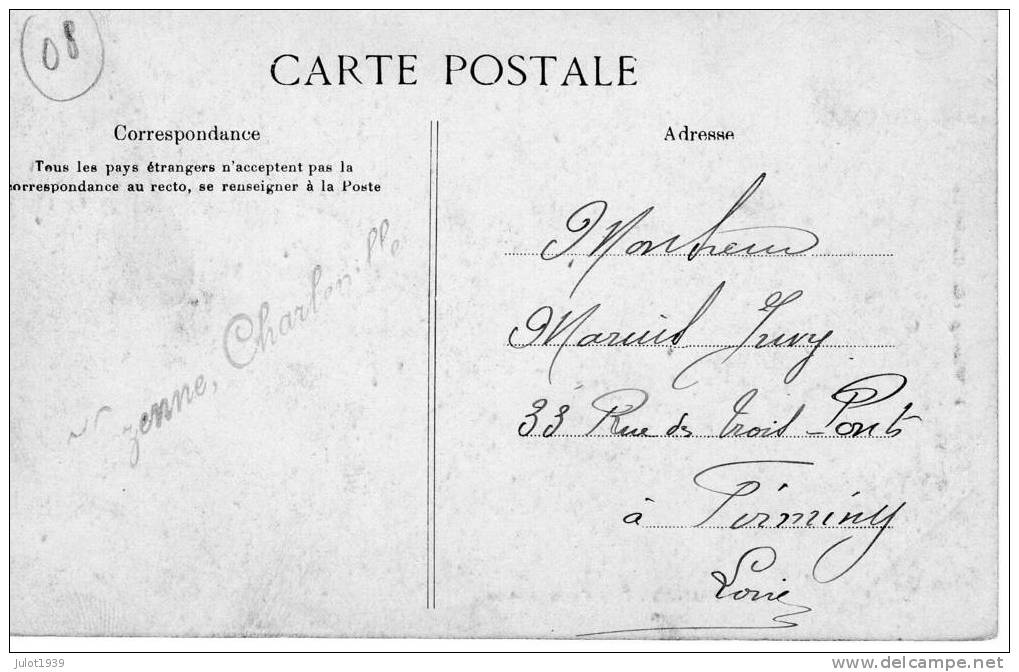 08
CARTE POSTALE
Correspondance
Tous les pays étrangers n'acceptent pas la
correspondance au recto, se renseigner à la Poste
Charleville
Adresse
Monsieur
Marius
33 Rue des Trois Ponts
à Firminy
Loire
julot1939
www.delcampe.net